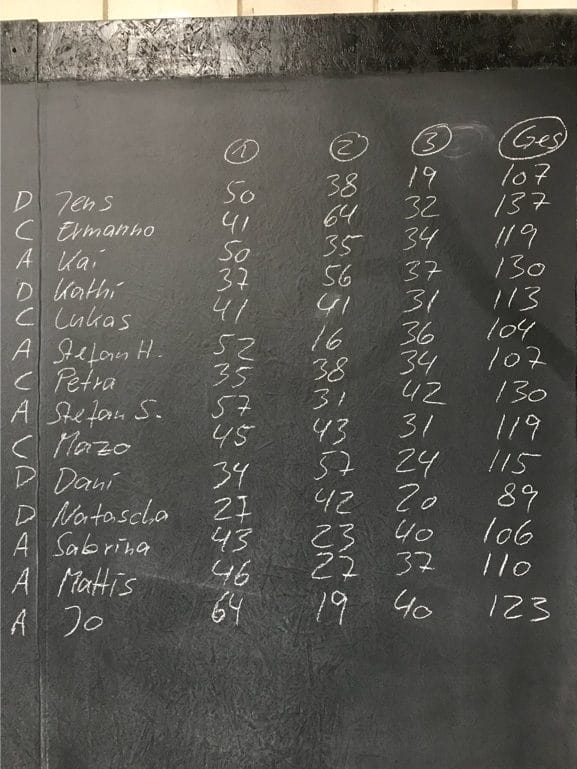 ① ② ③ Ges
D Jens 50 38 19 107
C Ermanno 41 64 32 137
A Kai 50 35 34 119
D Kathi 37 56 37 130
C Lukas 41 41 31 113
A Stefan H. 52 16 36 104
C Petra 35 38 34 107
A Stefan S. 57 31 42 130
C Mazo 45 43 31 119
D Dani 34 57 24 115
D Natascha 27 42 20 89
A Sabrina 43 23 40 106
A Mattis 46 27 37 110
A Jo 64 19 40 123